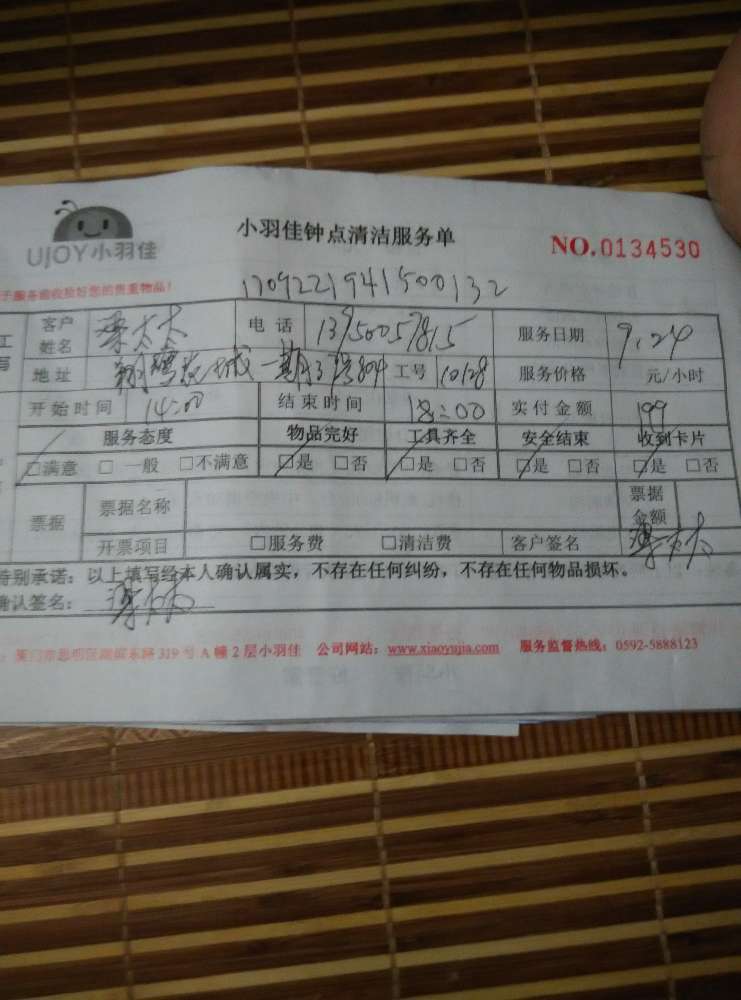 UJOY小羽佳
小羽佳钟点清洁服务单
NO.0134530
子服务前收拾好您的贵重物品!
1709221941500132
客户姓名 太太 电话 13950057815 服务日期 9.24
地址 城一期 804 工号 10128 服务价格 元/小时
开始时间 14:00 结束时间 18:00 实付金额 199
服务态度 物品完好 工具齐全 安全结束 收到卡片
□满意 □一般 □不满意 □是 □否 □是 □否 □是 □否 □是 □否
票据 票据名称 票据金额
开票项目 □服务费 □清洁费 客户签名 太太
特别承诺:以上填写经本人确认属实,不存在任何纠纷,不存在任何物品损坏。
确认签名: 太太
厦门市思明区湖滨东路319号A幢2层小羽佳 公司网站:www.xiaoyujia.com 服务监督热线:0592-5888123